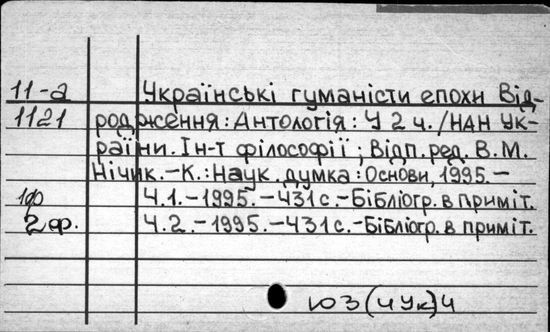 11-а Українські гуманісти епохи Від-
1121 родження: Антологія: У 2 ч./НАН Ук-
раїни. Ін-т філософії; Відп. ред. В.М.
Нічик.-К.: Наук. думка: Основи, 1995.-
1ф Ч.1.-1995.-431с.-Бібліогр. в приміт.
2ф. Ч.2.-1995.-431с.-Бібліогр. в приміт.
ЮЗ(4Ук)4